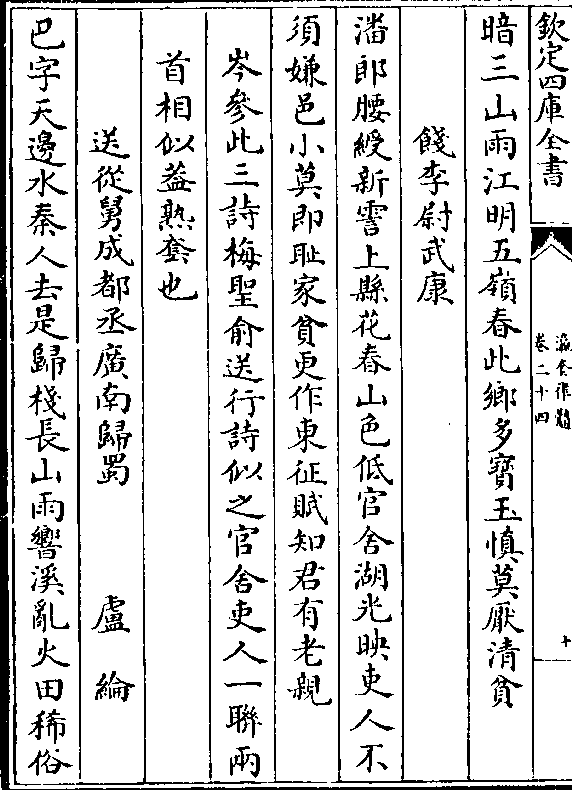 欽定四庫全書
瀛奎律髓
卷二十四
十
暗三山雨江明五嶺春此鄉多寶玉慎莫厭清貧
餞李尉武康
潘郎腰綬新霅上縣花春山色低官舍湖光映吏人不
須嫌邑小莫即耻家貧更作東征賦知君有老親
岑參此三詩梅聖俞送行詩似之官舍吏人一聯兩
首相似葢熟套也
送從舅成都丞廣南歸蜀　盧綸
巴字天邊水秦人去是歸棧長山雨響溪亂火田稀俗